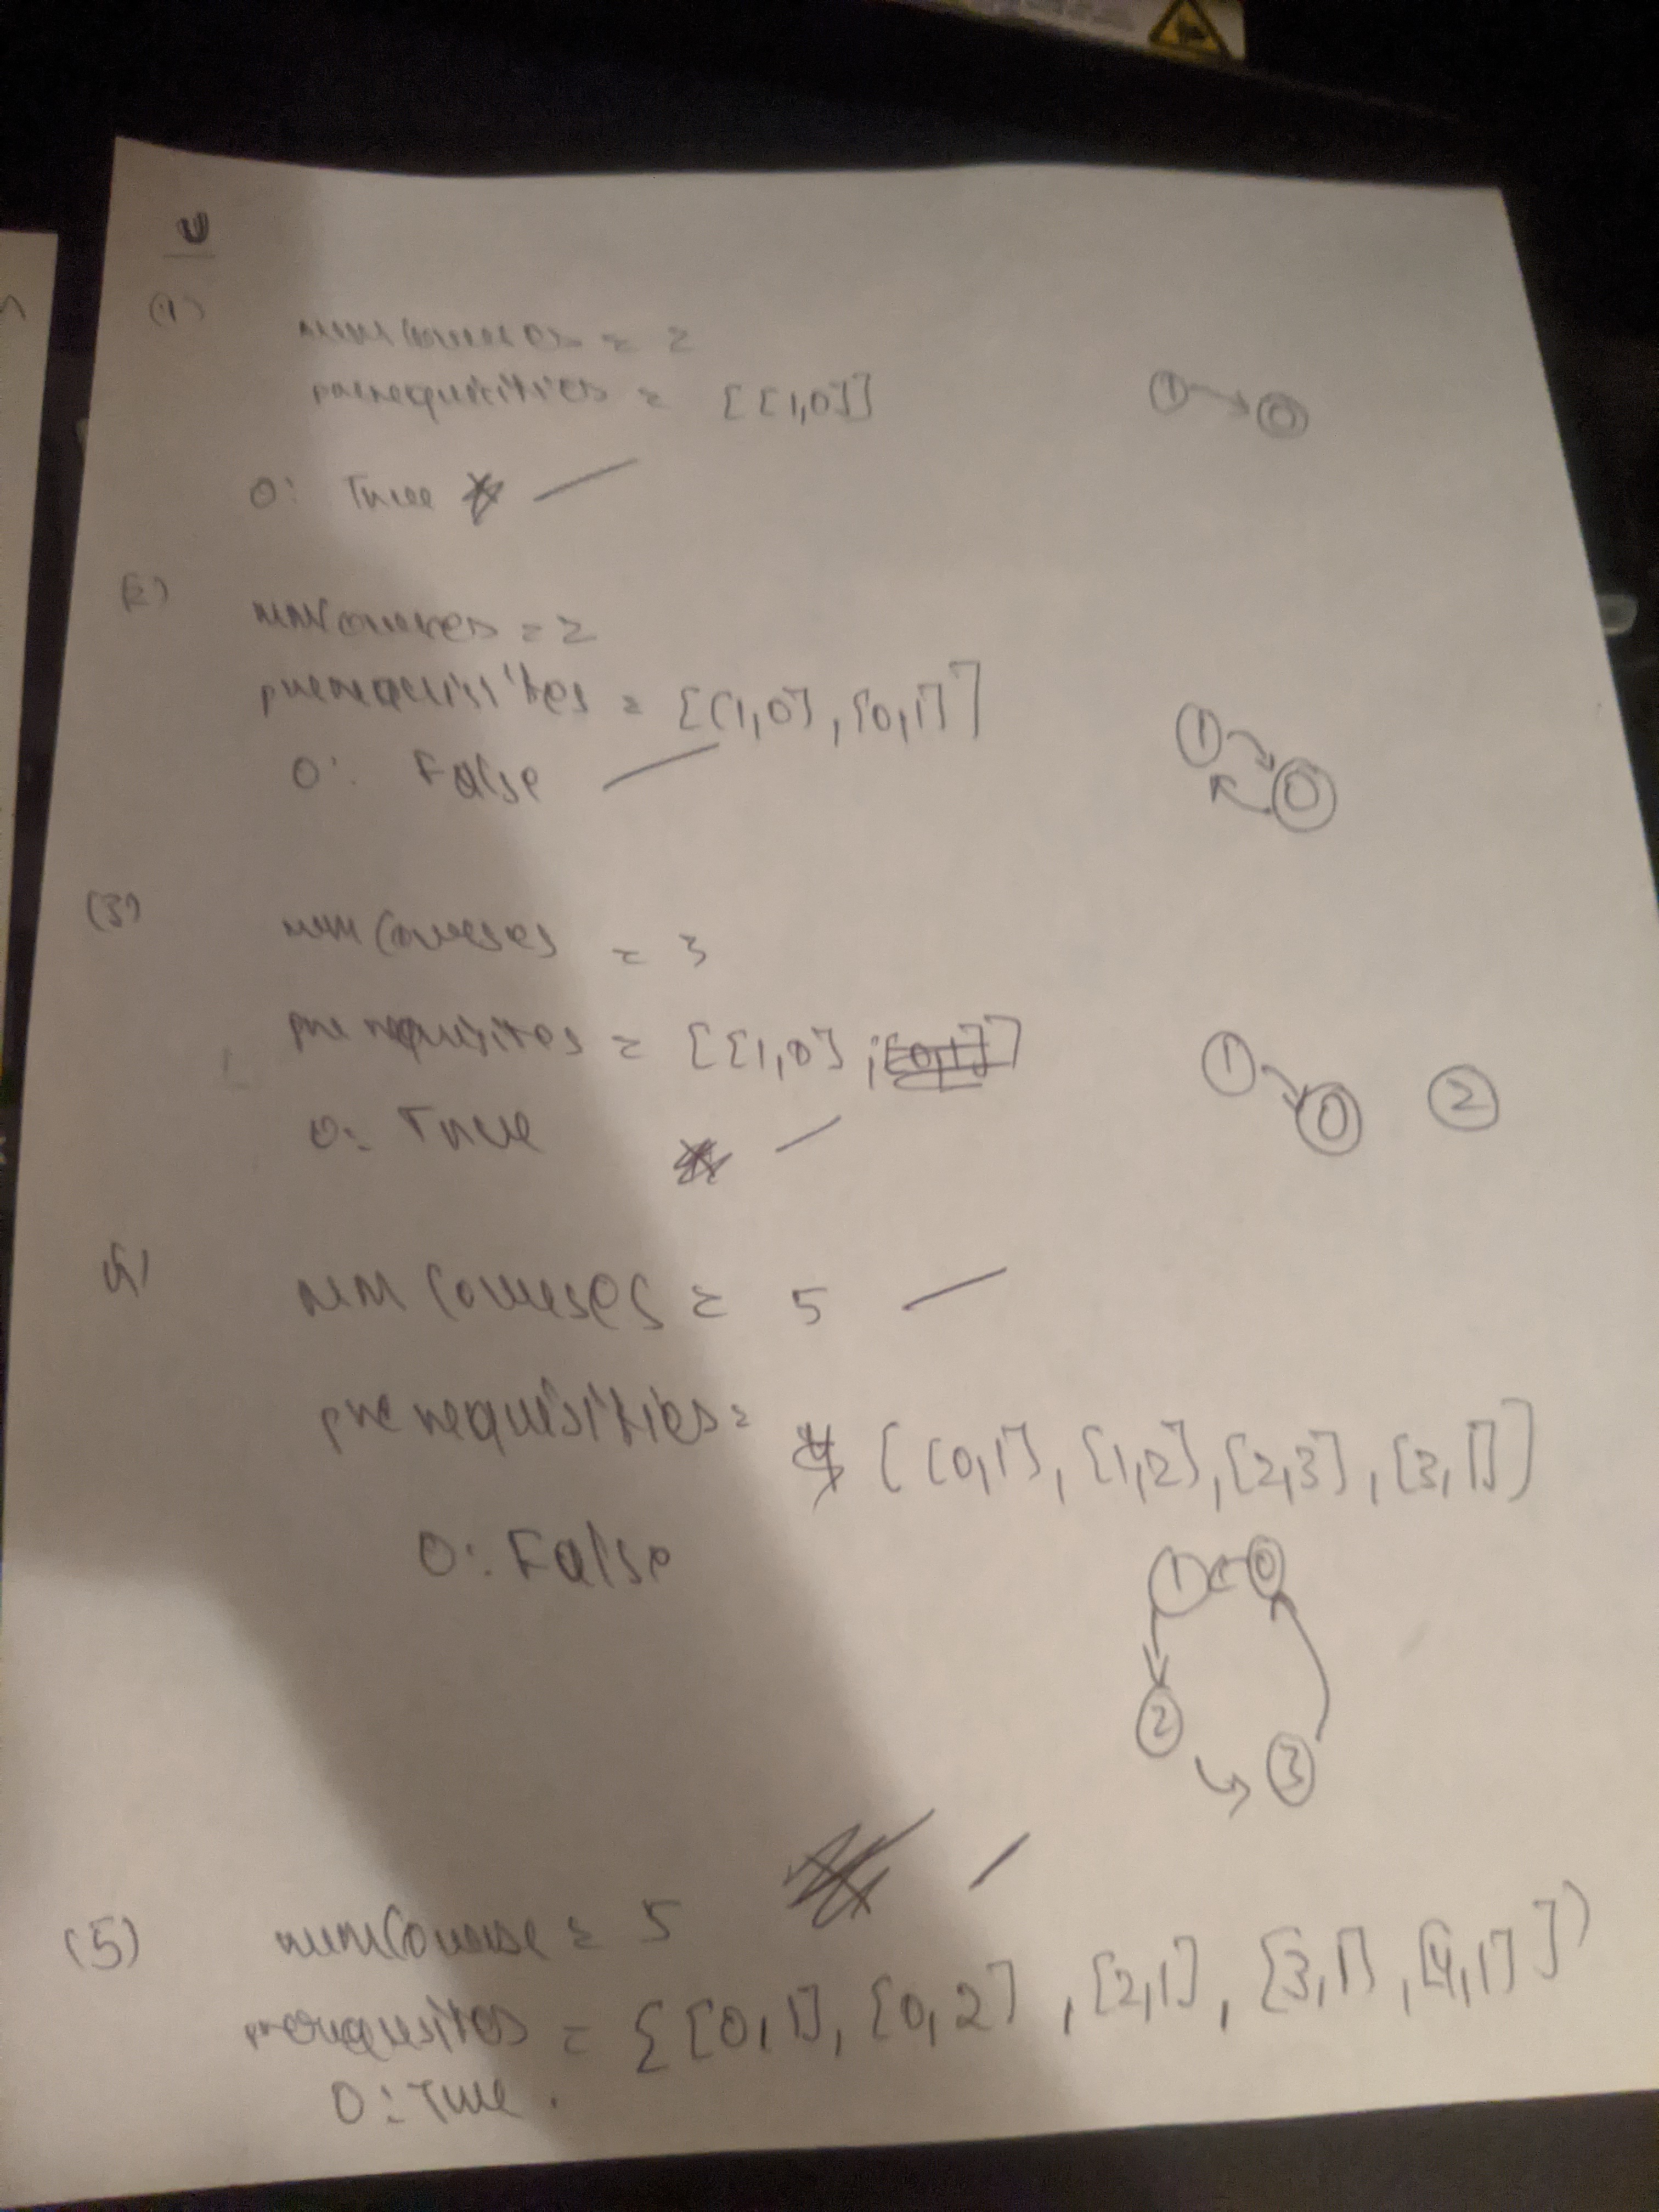 U
(1)
numCourses = 2
prerequisities = [[1,0]]
1 0
O: True
(2)
numCourses = 2
prerequisites = [[1,0], [0,1]]
1 0
O: False
(3)
numCourses = 3
prerequisites = [[1,0]
1 0 2
O: True
numCourses = 5
prerequisities =
[[0,1], [1,2], [2,3], [3,1]]
O: False
1 0
2 3
(5)
numCourse = 5
prerequsites = {[0,1], [0,2], [2,1], [3,1], [4,1]])
O: True.